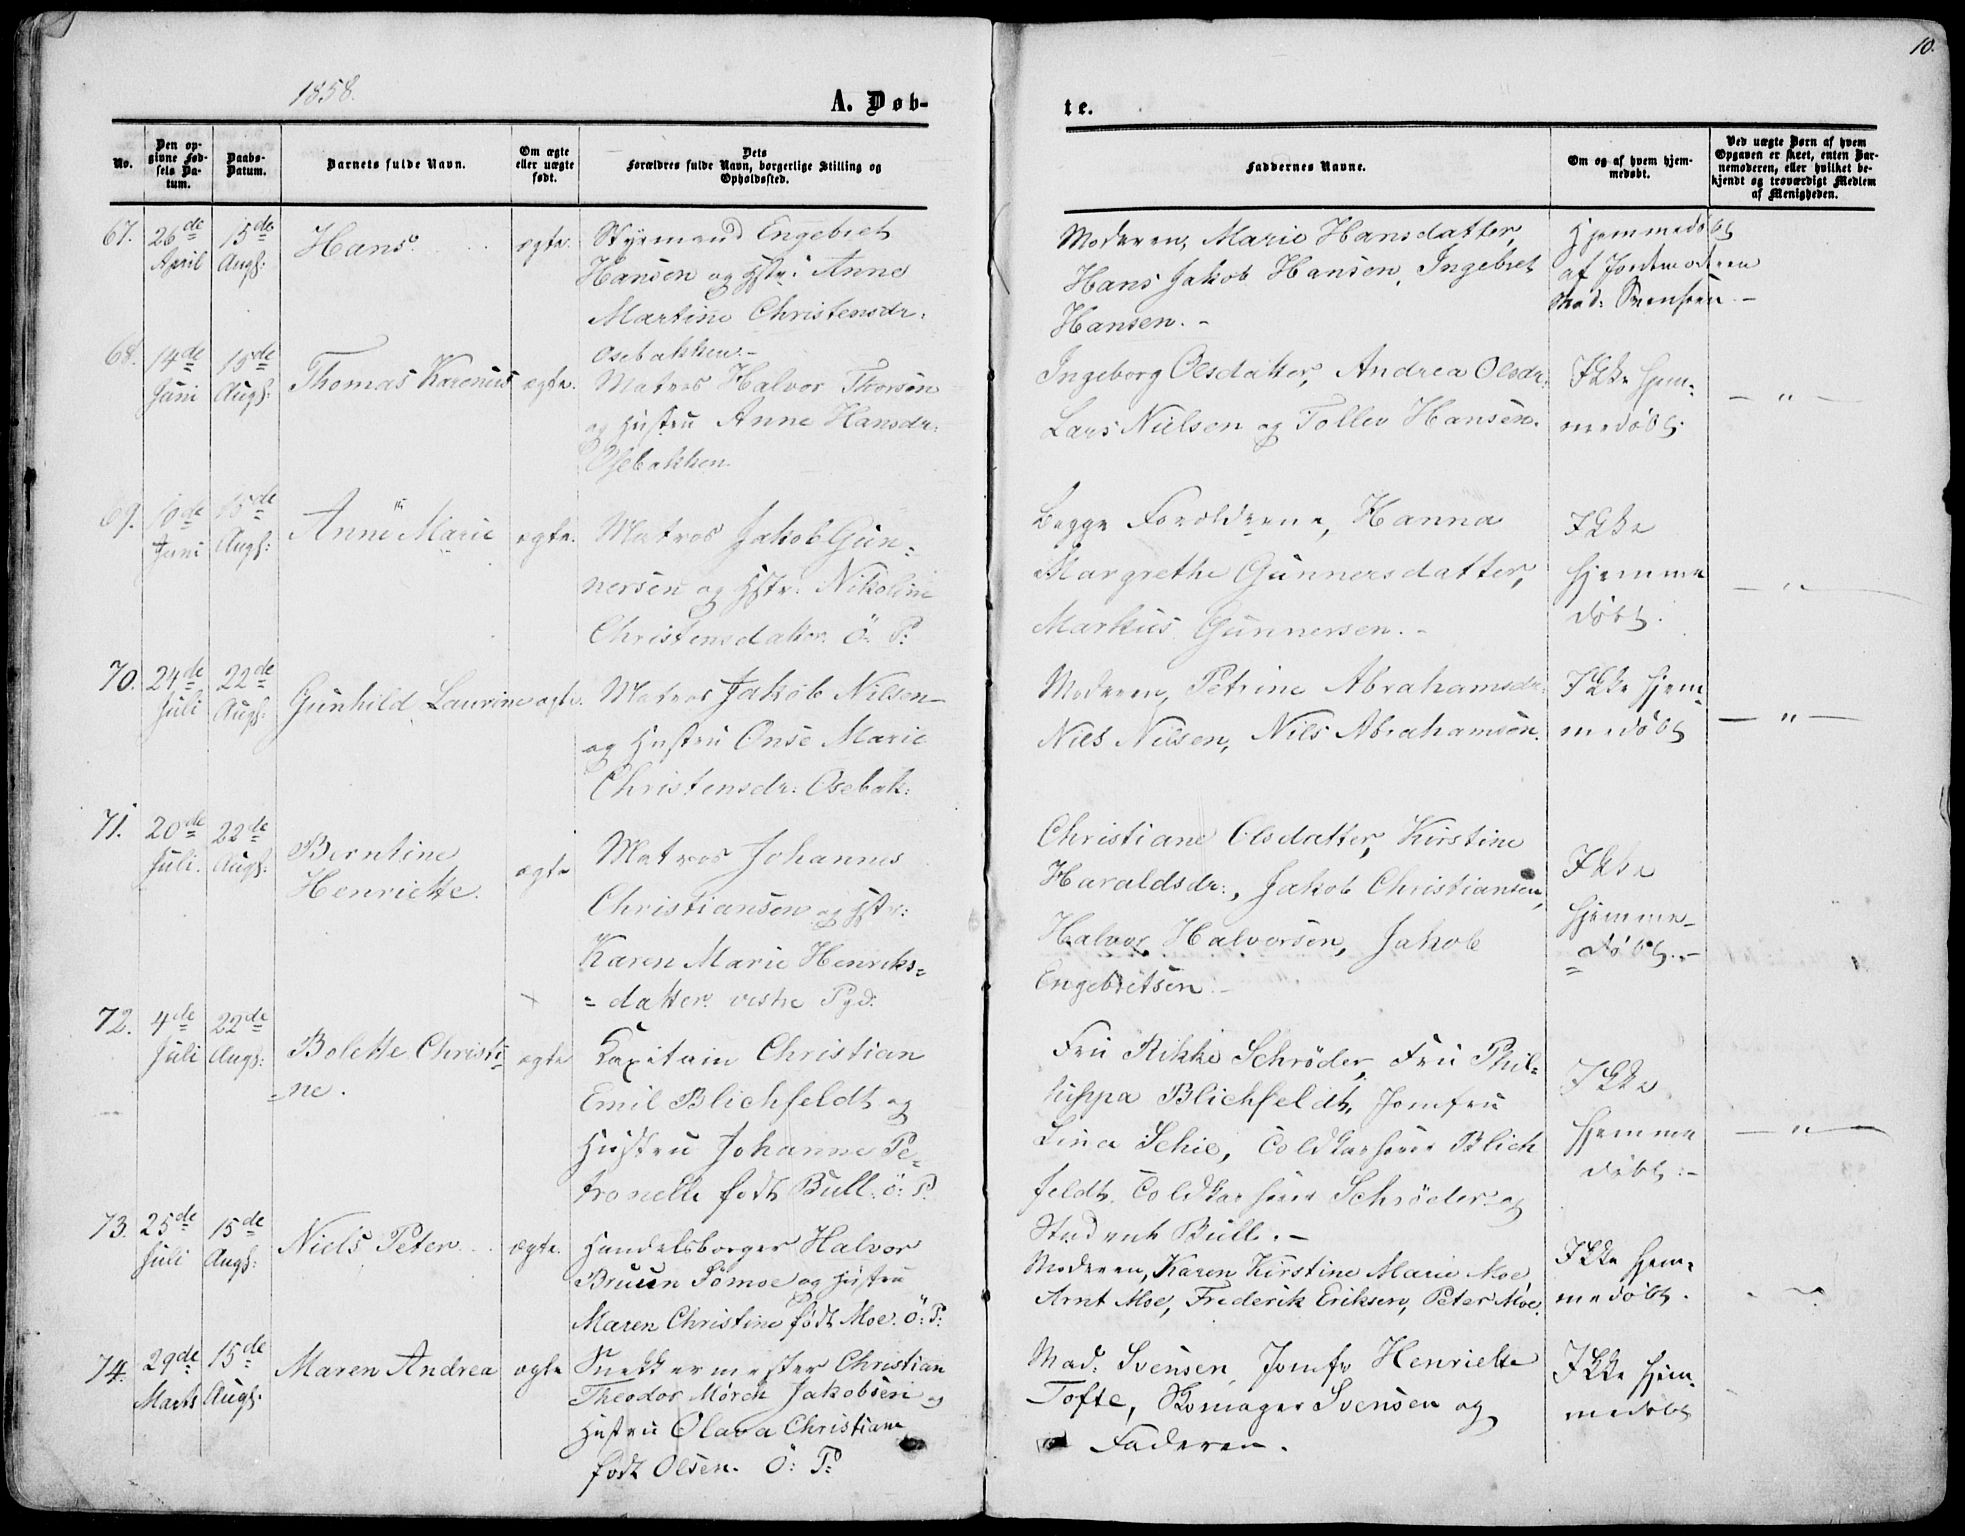 10.
1858.
A. Døb-
te.
No.
Den op-
givne Fød-
sels Da-
tum.
Daabs-
Datum.
Barnets fulde Navn.
Om ægte
eller uægte
født.
Dets
Forældres fulde Navn, borgerlige Stilling og
Opholdssted.
Faddernes Navne.
Om og af hvem hjem-
medøbt.
Ved uægte Børn af hvem
Opgaven er skeet, enten Bar-
nemoderen, eller hvilket be-
kjendt og troværdigt Medlem
af Menigheden.
67.
26de
April
15de
Augs:
Hans.
ægte.
Styrmand Engebret
Hansen og Hstr: Anne
Martine Christensdr:
Osebakken.-
Moderen, Marie Hansdatter,
Hans Jakob Hansen, Ingebret
Hansen. -
Hjemmedøbt
af Jordemoderen
Mad: Svensen -
68.
14de
Juni
15de
Augs:
Thomas Karenius
ægte.
Matros Halvor Thorsen
og Hustru Anne Hansdr:
Osebakken.
Ingeborg Olsdatter, Andrea Olsdr:
Lars Nielsen og Tollev Hansen.
Ikke hjem-
medøbt.
— " —
69.
10de
Juni
15de
Augs:
Anne Marie
ægte.
Matros Jakob Gun-
nersen og Hstr: Nikoline
Christensdatter. Ö: P:
Begge Forældrene, Hanna
Margrethe Gunnersdatter,
Markus Gunnersen. -
Ikke
hjemme
døbt.
— " —
70.
24de
Juli
22de
Augs:
Gunhild Laurine
ægte.
Matros Jakob Nilsen
og Hustru Onse Marie
Christensdr: Osebak:
Moderen, Petrine Abrahamsdr:
Niels Nilsen, Nils Abrahamsen.
Ikke hjem-
medøbt
— " —
71.
20de
Juli.
22de
Augs:
Berntine
Henriette.
ægte
Matros Johannes
Christiansen og Hstr:
Karen Marie Henriks=
= datter. vestre Pgd:
Christiane Olsdatter, Kirstine
Haraldsdr:, Jakob Christiansen,
Halvor Halvorsen, Jakob
Engebretsen -
Ikke
hjemme-
= døbt. -
72.
4de
Juli
22de
Augs:
Bolette Christi-
-ne.
ægte
Kapitain Christian
Emil Blichfeldt og
Hustru Johanne Pe-
tronelle født Bull. ö: P.
Fru Rikke Schrøder, Fru Phil-
lippa Blichfeldt, Jomfru
Lina Schie, Coldkarserer Blich
feldt, Coldkarserer Schrøder og
Student Bull. -
Ikke
hjemme
døbt: -
— " —
73.
25de
Juli
15de
Augs:
Niels Peter.
ægte.
Handelsborger Halvor
Bruun Sömoe og Hustru
Maren Christine født Moe. Ö: P:
Moderen, Karen Kirstine Marie Moe,
Arnt Moe, Frederik Eriksen, Peter Moe.
Ikke hjem-
medøbt.
74.
29de
Marts
15de
Augs:
Maren Andrea
ægte
Snedkermester Christian
Theodor Mörch Jakobsen og
Hustru Olava Christiane
født Olsen. Ö: P:
Mad: Svensen, Jomfr Henriette
Tofte, Skomager Svensen og
Faderen.
Ikke hjem-
medøbt